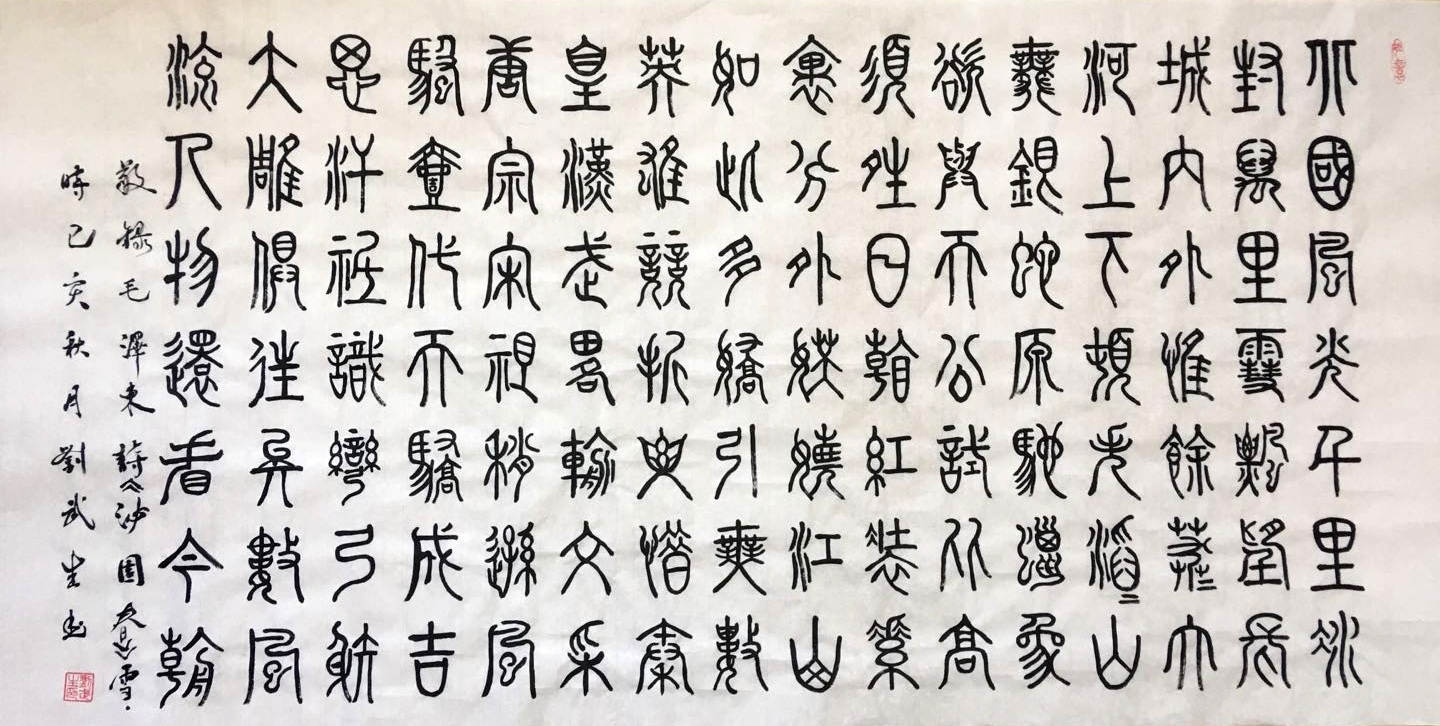 北國風光千里冰
封萬里雪飄望長
城內外惟餘莽〻大
河上下頓失滔〻山
舞銀蛇原馳蠟象
欲與天公試比高
須晴日看紅裝素
裹分外妖嬈江山
如此多嬌引無數
英雄競折腰惜秦
皇漢武略輸文采
唐宗宋祖稍遜風
騷壹代天驕成吉
思汗祗識彎弓射
大雕俱往矣數風
流人物還看今朝
敬錄毛澤東詩沁園春雪
時己亥秋月劉武生書